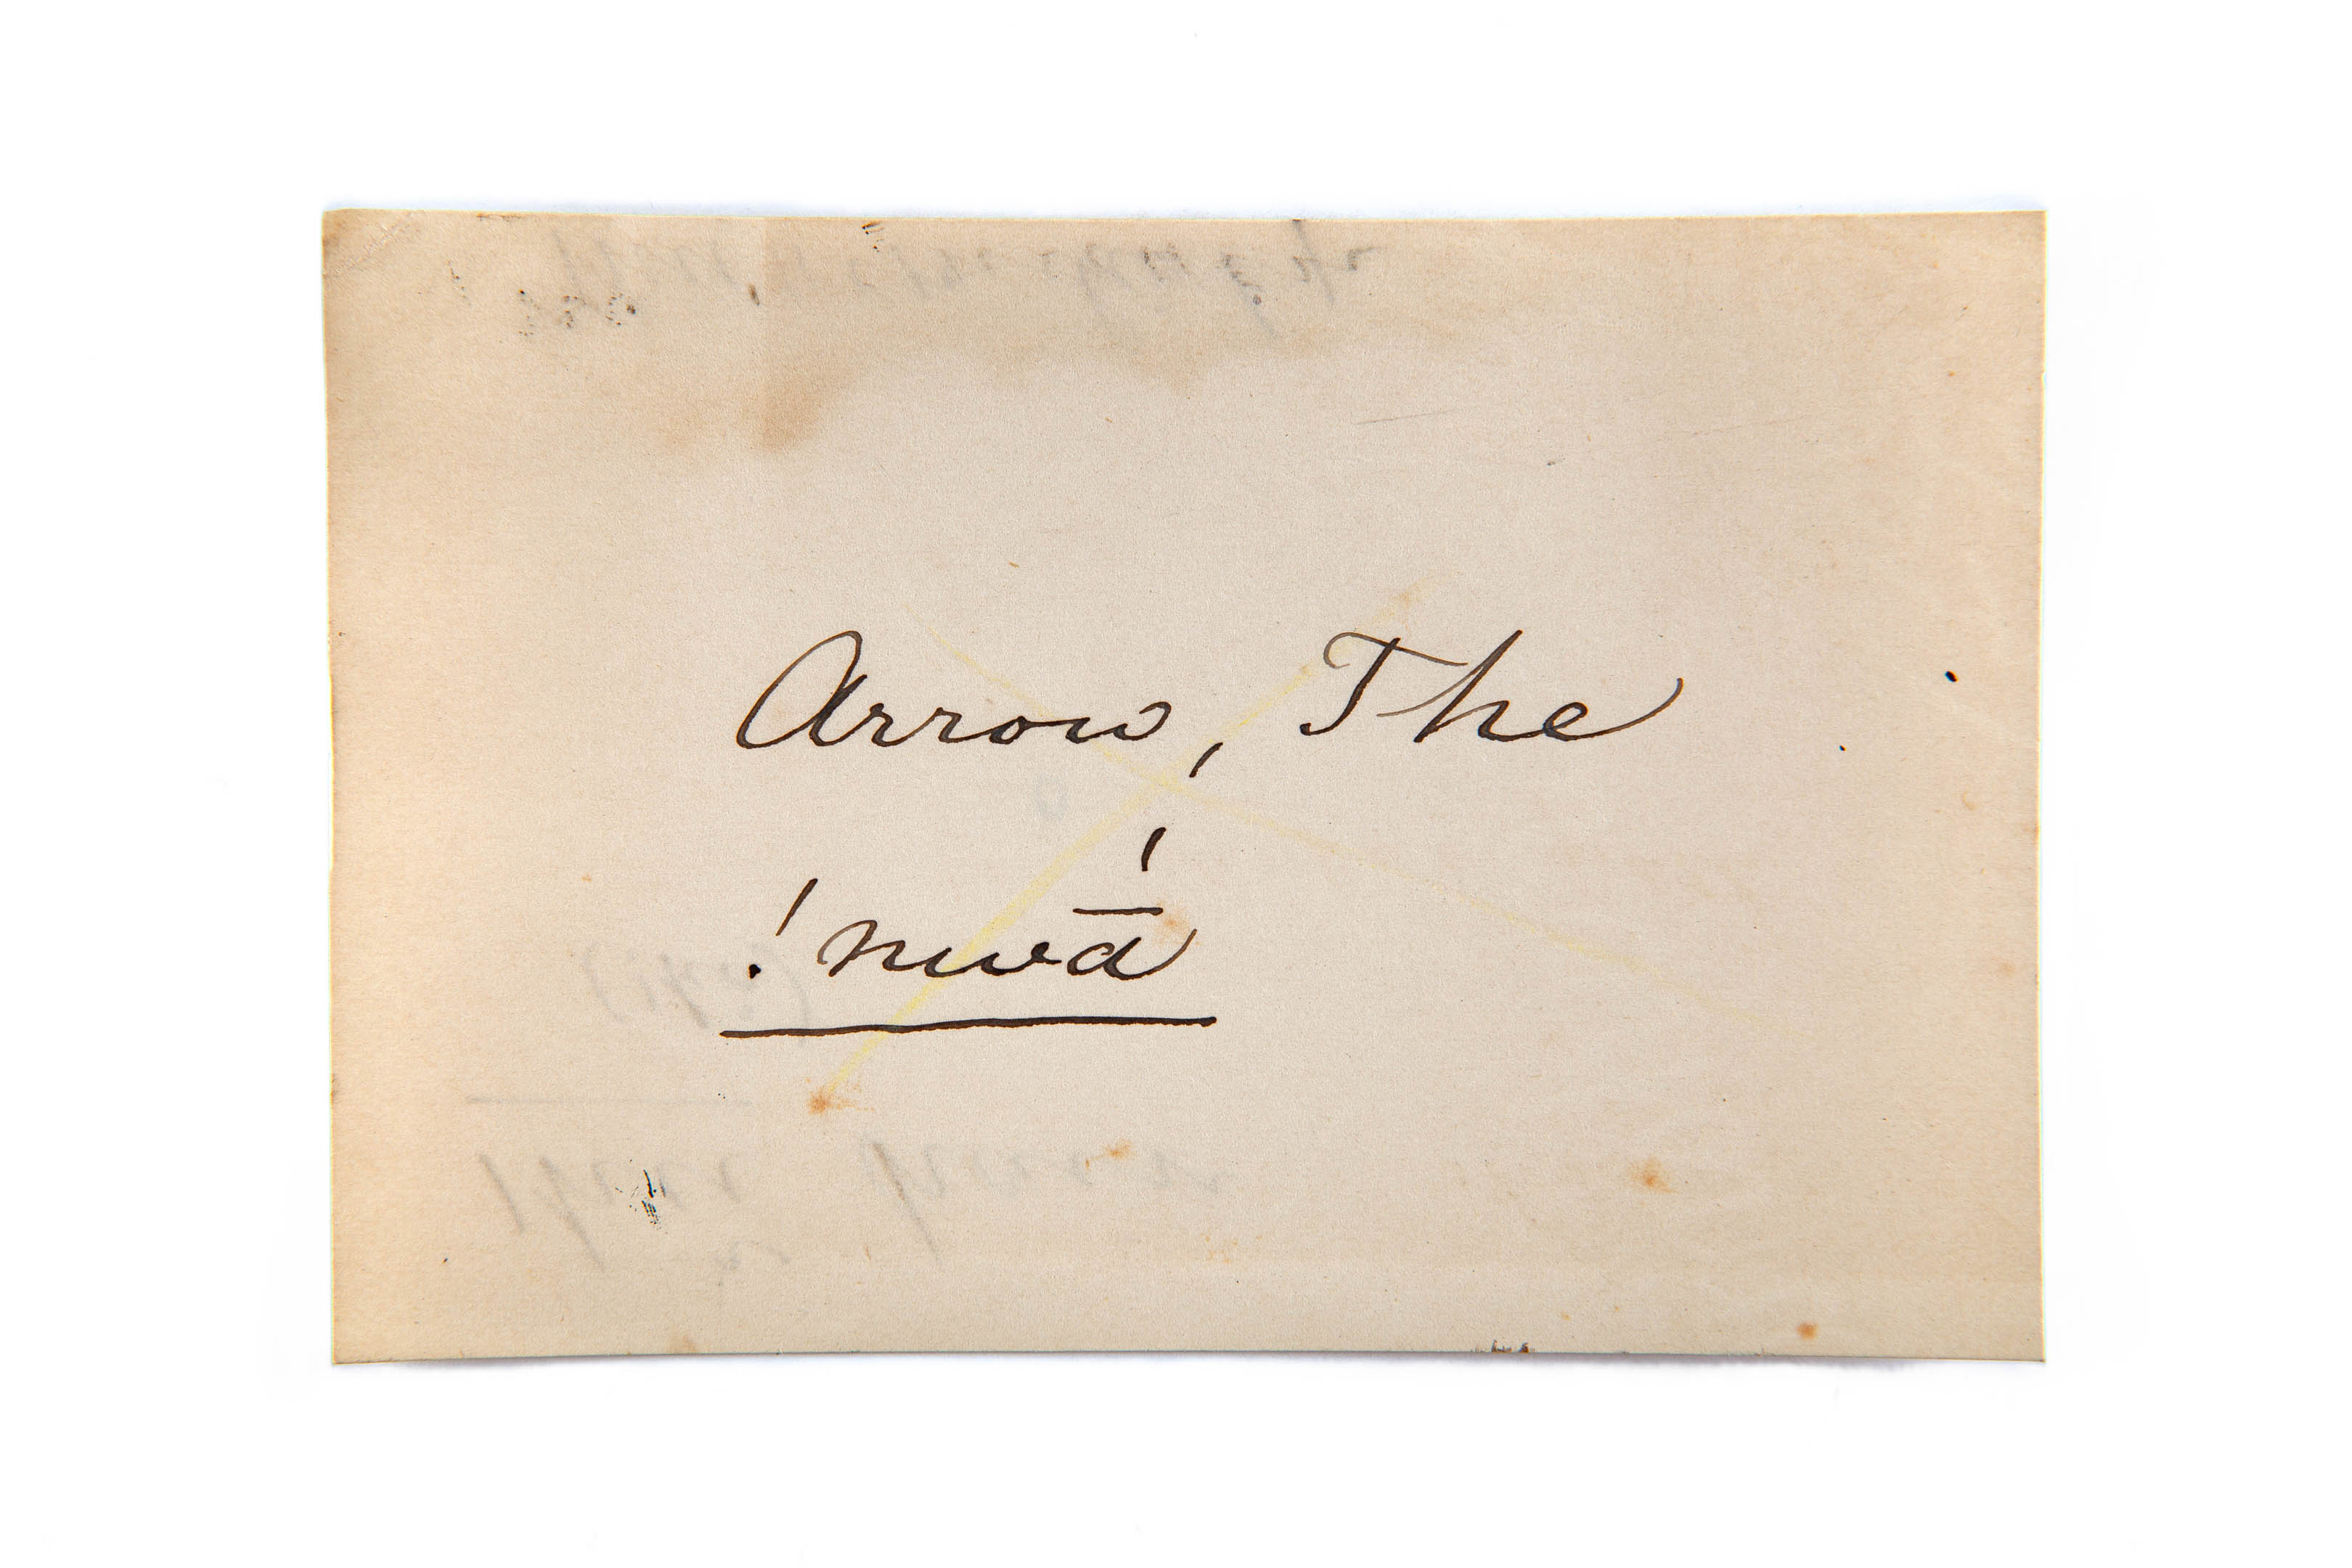 Arrow, The
!nwā́